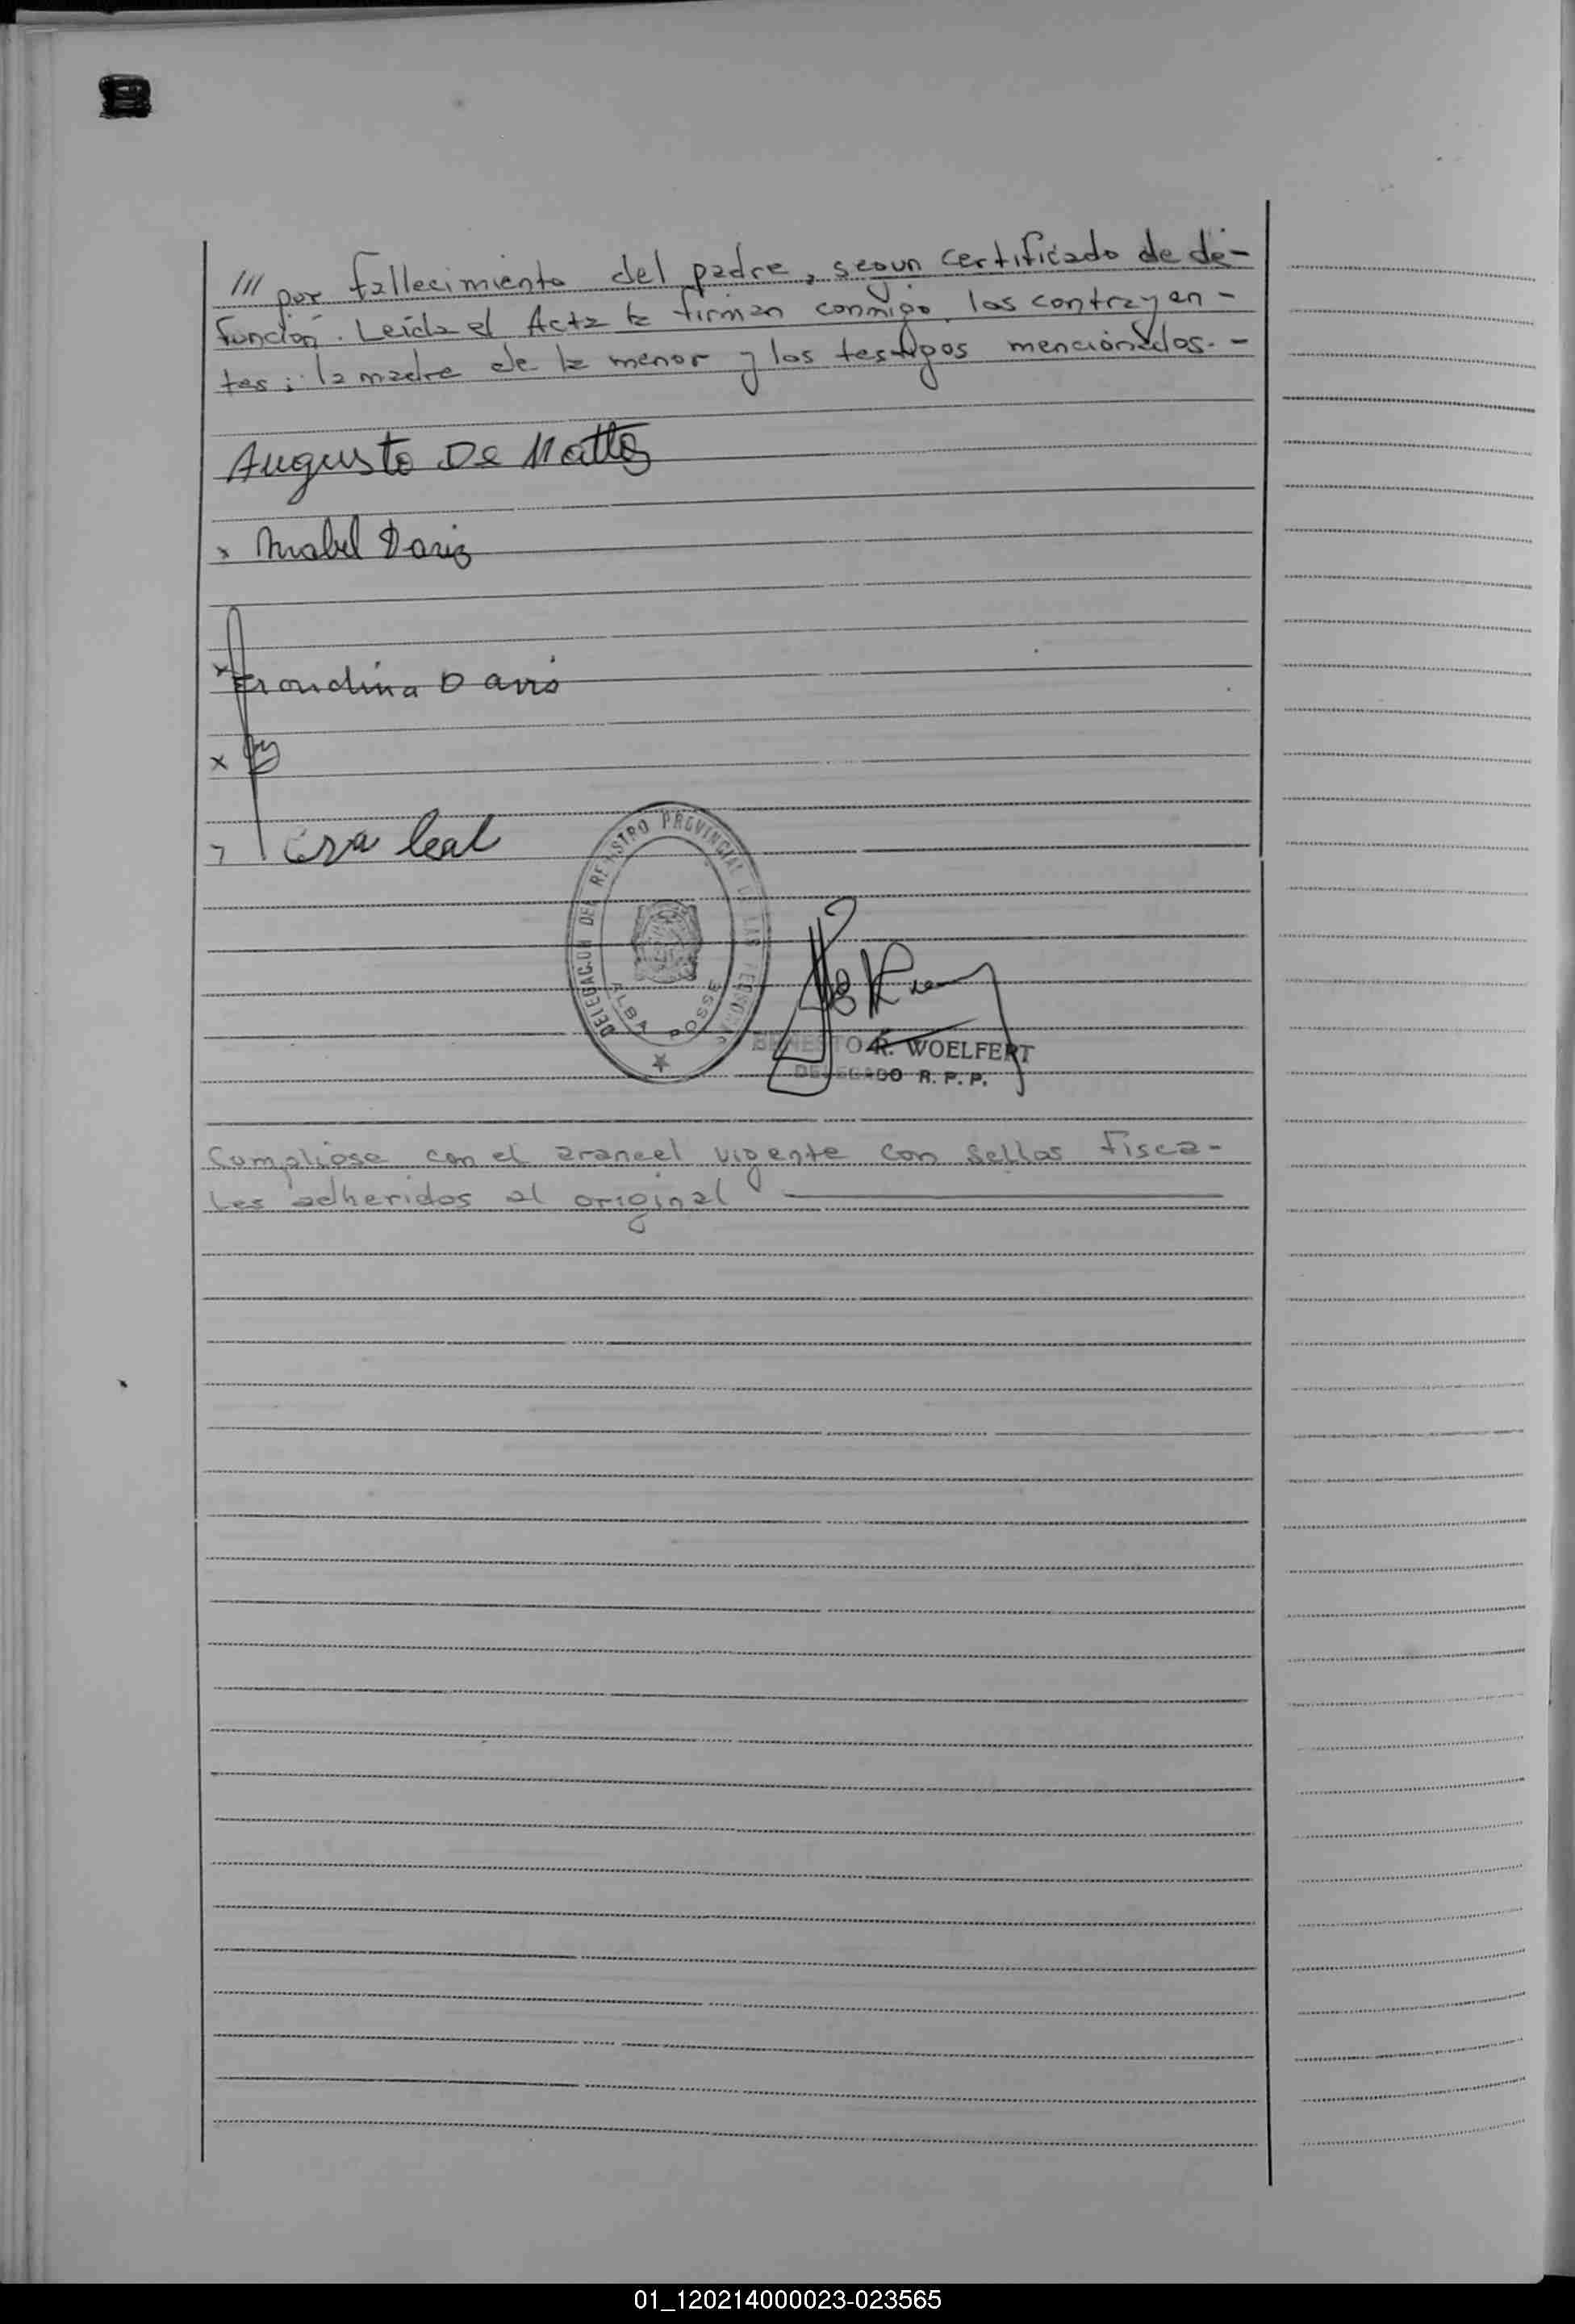 /// por fallecimiento del padre, segun certificado de de-
función. Leída el Acta la firman conmigo, los contrayen-
tes; la madre de la menor y los testigos mencionados.-
Augusto De Mattos
x Mabel Daris
x Erondina Daris
x
Leal
DELEGACION DEL REGISTRO PROVINCIAL DE LAS PERSONAS
ALBA POSSE
ERNESTO R. WOELFERT
DELEGADO R. P. P.
Cumpliose con el arancel vigente con sellos fisca-
les adheridos al original
01_120214000023-023565